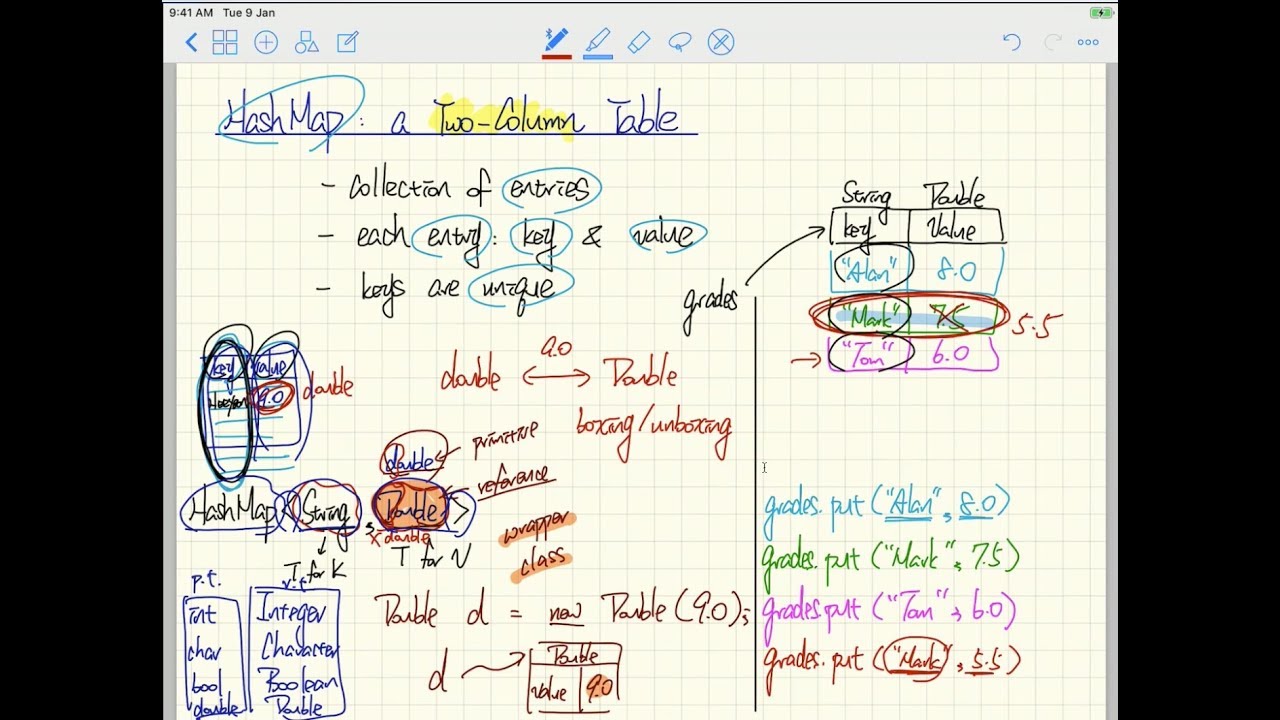 9:41 AM Tue 9 Jan
HashMap: a Two-Column Table
- collection of entries
- each entry: key & value
- keys are unique
grades
String Double
key Value
"Alan" 8.0
"Mark" 7.5 5.5
"Tom" 6.0
key value
9.0 double
9.0
double Double
boxing/unboxing
double primitive
reference
HashMap < String, Double >
x double
T for K
T for V
wrapper
class
p.t. r.t
int Integer
char Character
bool Boolean
double Double
Double d = new Double (9.0);
d
Double
value 9.0
grades.put ("Alan", 8.0)
grades.put ("Mark", 7.5)
grades.put ("Tom", 6.0)
grades.put ("Mark", 5.5)